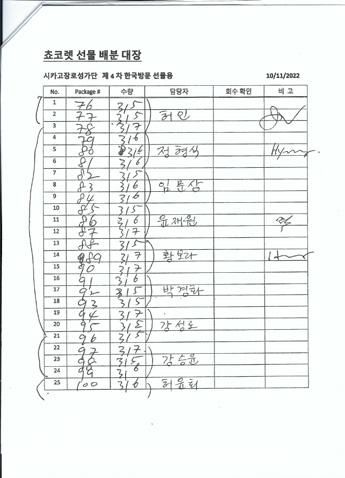 쵸코렛 선물 배분 대장
시카고장로성가단 제 4 차 한국방문 선물용 10/11/2022
No. Package # 수량 담당자 회수 확인 비 고
1 76 315
2 77 315 허인
3 78 317
4 79 316
5 80 316 정형석
6 81 316
7 82 315
8 83 316
9 84 316
10 85 315
11 86 316 윤재원
12 87 317
13 88 315
14 89 317 황보라
15 90 317
16 91 316
17 92 315 박경화
18 93 315
19 94 317
20 95 315 강성도
21 96 315
22 97 317
23 98 315 강승훈
24 99 316
25 100 316